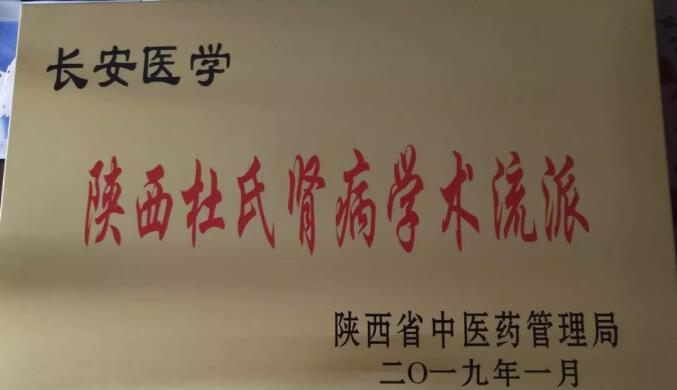 长安医学
陕西杜氏肾病学术流派
陕西省中医药管理局
二〇一九年一月